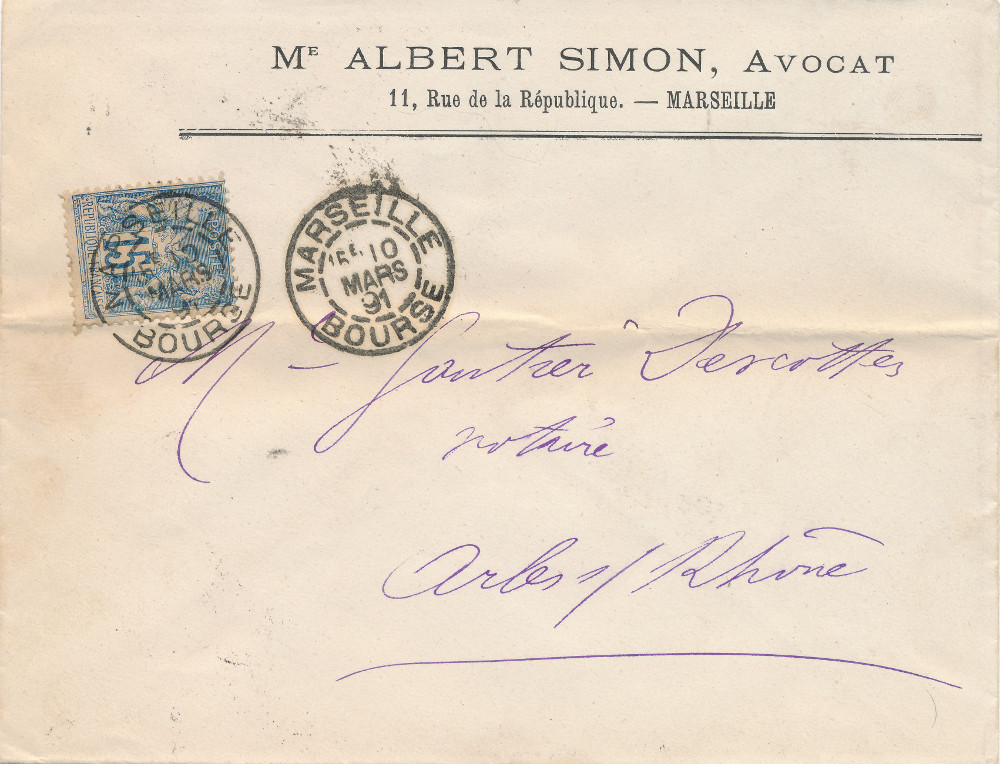 Mᴱ ALBERT SIMON, AVOCAT
11, Rue de la République. — MARSEILLE
POSTES
RÉPUBLIQUE FRANÇAISE
15
MARSEILLE
MARS
91
BOURSE
MARSEILLE
1RE 10
MARS
91
BOURSE
M – Gautier Descottes
notaire
Arles s/ Rhône